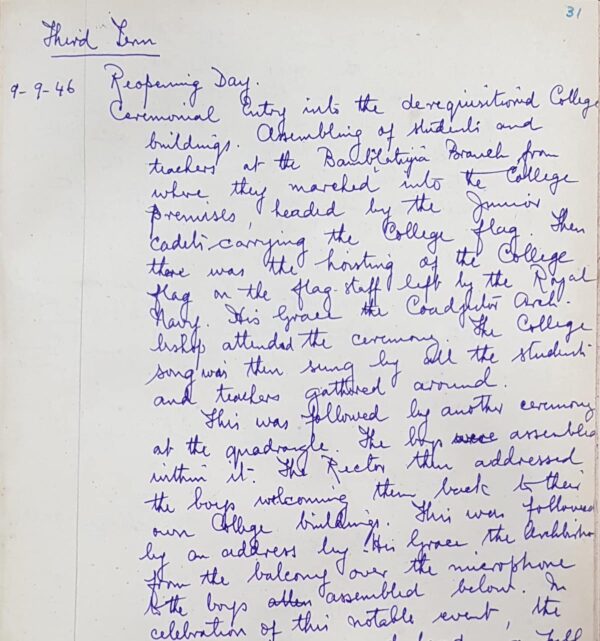 31
Third Term
9-9-46 Reopening Day.
Ceremonial Entry into the derequisitioned College
buildings. Assembling of students and
teachers at the Branch from
where they marched into the College
premises, headed by the Junior
Cadets carrying the College flag. Then
there was the hoisting of the College
flag on the flag-staff left by the Royal
Navy. His Grace the Coadjutor Arch-
bishop attended the ceremony. The College
song was then sung by all the students
and teachers gathered around.
This was followed by another ceremony
at the quadrangle. The boys were assembled
within it. The Rector then addressed
the boys welcoming them back to their
own College buildings. This was followed
by an address by His Grace the Archbishop
from the balcony over the microphone
to the boys assembled below. In
celebration of this notable event, the